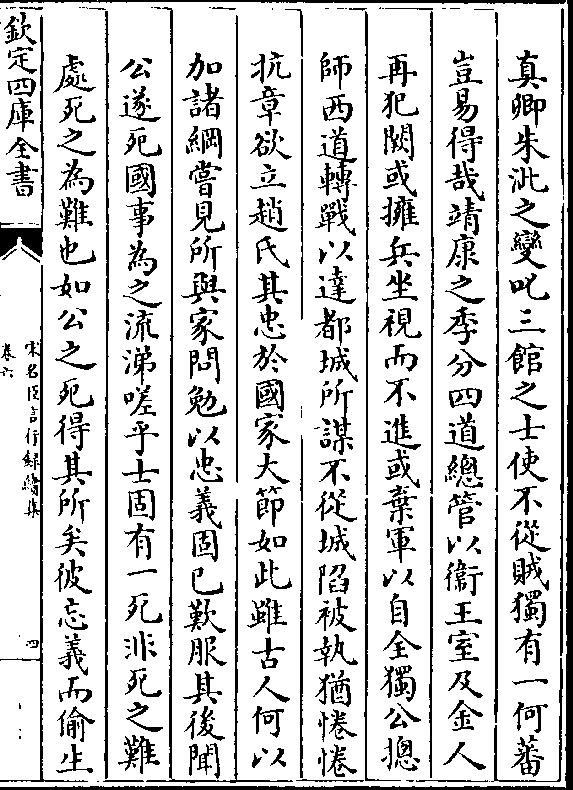 真卿朱泚之變叱三館之士使不從賊獨有一何蕃
豈易得哉靖康之季分四道總管以衞王室及金人
再犯闕或擁兵坐視而不進或棄軍以自全獨公摠
師西道轉戰以達都城所謀不從城陷被執猶惓惓
抗章欲立趙氏其忠於國家大節如此雖古人何以
加諸綱嘗見所與家問勉以忠義固已歎服其後聞
公遂死國事為之流涕嗟乎士固有一死非死之難
處死之為難也如公之死得其所矣彼忘義而偷生
欽定四庫全書
宋名臣言行録續集
卷六
四